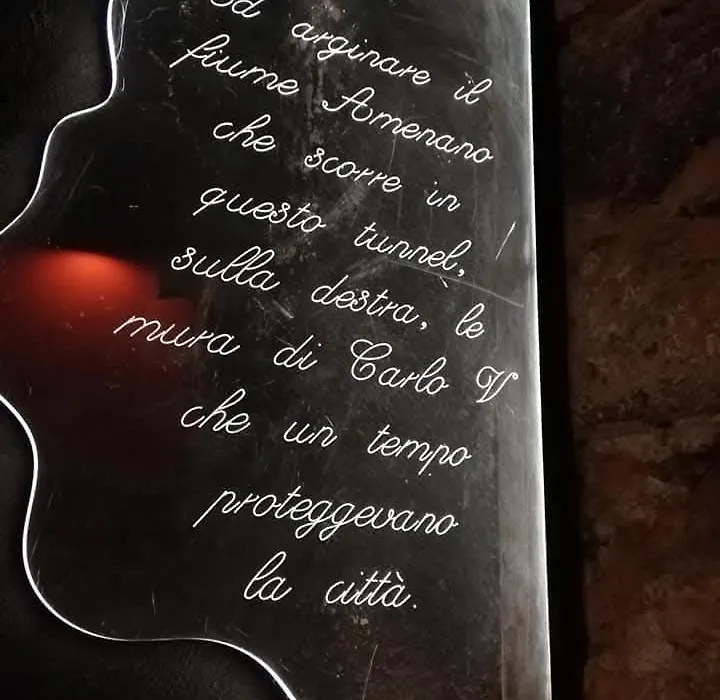 arginare il
fiume Amenano
che scorre in
questo tunnel,
sulla destra, le
mura di Carlo V
che un tempo
proteggevano
la città.